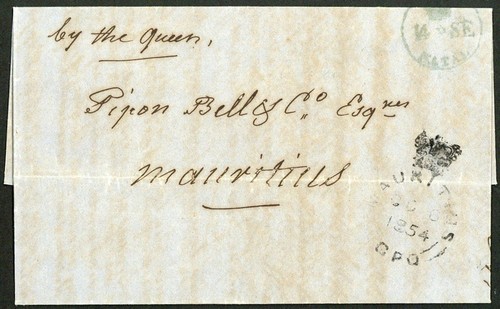 by the Queen,
14 SE
NATAL
Pipon Bell & Co Esqres
Mauritius
MAURITIUS
1854
GPO